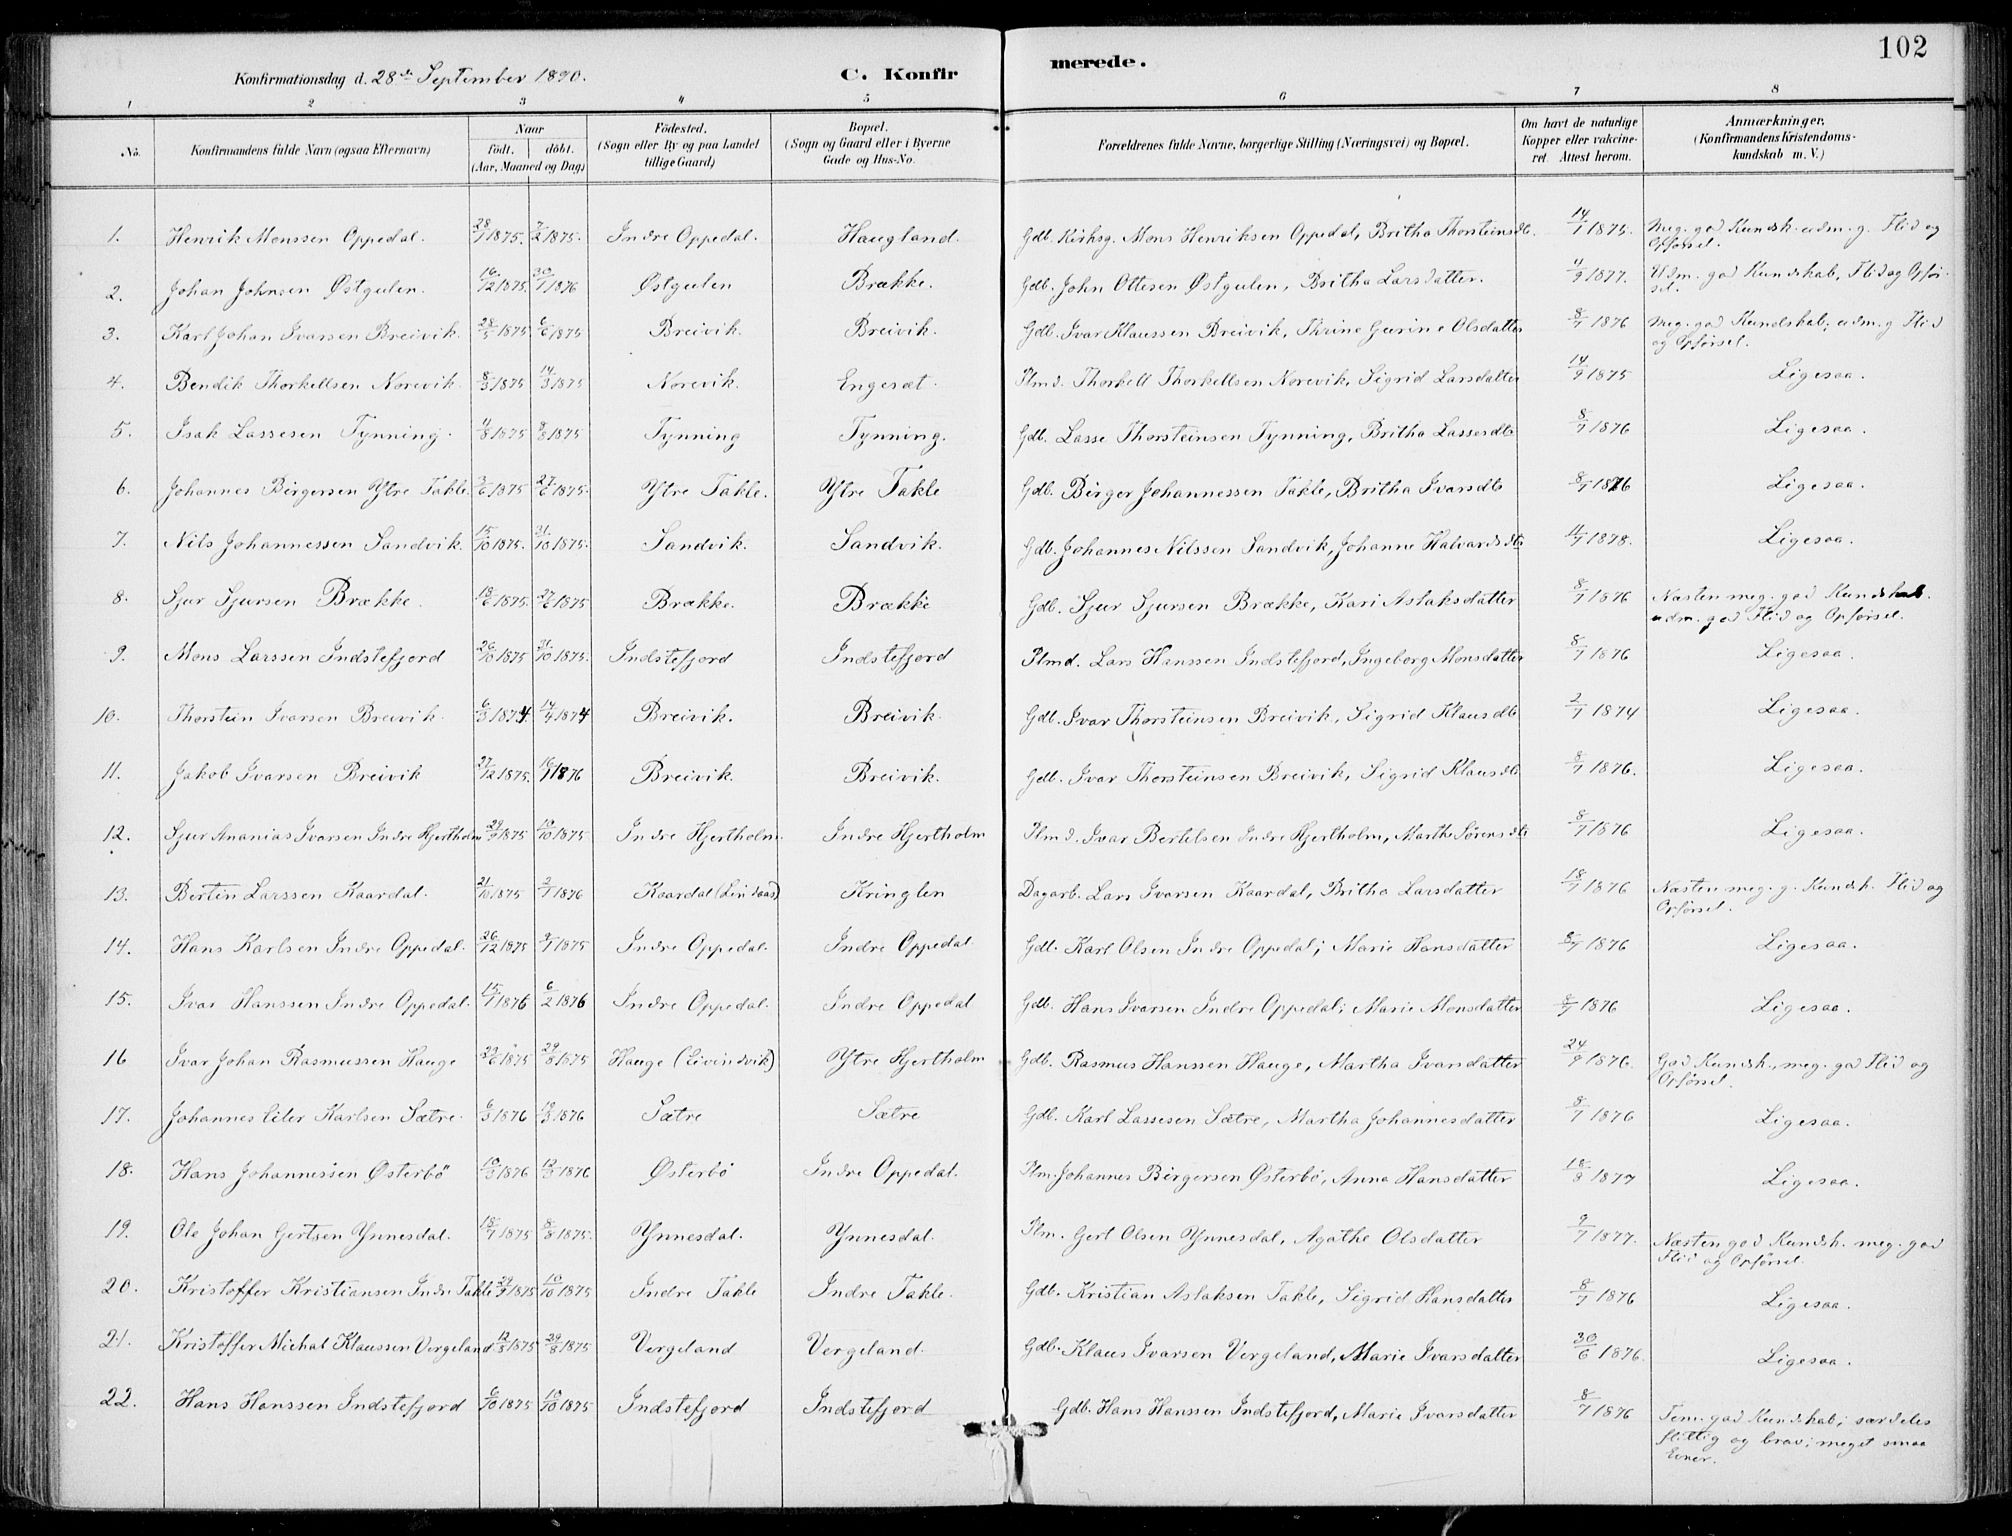 102
Konfirmationsdag d. 28de September 1890.
C. Konfirmerede.
1 2 3 4 5 6 7 8
No. | Konfirmandens fulde Navn (ogsaa Efternavn) | Naar födt. döbt. (Aar, Maaned og Dag) | Födested. (Sogn eller By og paa Landet tillige Gaard) | Bopæl. (Sogn og Gaard eller i Byerne Gade og Hus-No. | Forældrenes fulde Navne, borgerlige Stilling (Næringsvei) og Bopæl. | Om havt de naturlige Kopper eller vakcineret. Attest herom. | Anmærkninger. (Konfirmandens Kristendomskundskab m. V.)
1. Henrik Monssen Oppedal. 28/1 1875. 7/2 1875. Indre Oppedal. Haugland. Gdb. Kirksg. Mons Henriksen Oppedal, Britha Thorsteinsdt. 14/7 1875. Meg. god Kundsk. udm. g. Flid og Opførsel.
2. Johan Johnsen Østgulen. 16/12 1875. 30/1 1876 Østgulen Brække. Gdb. John Ottesen Østgulen, Britha Larsdatter. 4/9 1877. Udm. god Kundskab, Flid og Opførsel.
3. Karl Johan Ivarsen Breivik. 28/5 1875. 6/6 1875 Breivik. Breivik. Gdb. Ivar Klaussen Breivik, Thrine Gurine Olsdatter 8/7 1876 Meg. god Kundskab; udm. g Flid og Opførsel.
4. Bendik Thorkellsen Norevik. 8/3 1875 14/3 1875 Norevik. Engesæt. Plmd. Thorkell Thorkellsen Norevik, Sigrid Larsdatter 14/9 1875 Ligesaa.
5. Isak Lassesen Tynning. 4/8 1875 8/8 1875 Tynning Tynning. Gdb. Lasse Thorsteinsen Tynning, Britha Lassesdt 8/7 1876 Ligesaa.
6. Johannes Birgersen Ytre Takle. 3/6 1875 27/6 1875. Ytre Takle. Ytre Takle Gdb. Birger Johannessen Takle, Britha Ivarsdt 8/7 1876 Ligesaa.
7. Nils Johannessen Sandvik. 15/10 1875. 31/10 1875. Sandvik. Sandvik. Gdb. Johannes Nilssen Sandvik, Johanne Halvardsdt 11/7 1878. Ligesaa.
8. Sjur Sjursen Brække. 18/6 1875. 27/6 1875 Brække. Brække Gdb. Sjur Sjursen Brække, Kari Aslaksdatter 8/7 1876 Næsten meg. god Kundskab. udm. god Flid og Opførsel.
9. Mons Larssen Indstefjord 26/10 1875 31/10 1875. Indstefjord Indstefjord Plmd. Lars Hanssen Indstefjord, Ingeborg Monsdatter 8/7 1876 Ligesaa.
10. Thorstein Ivarsen Breivik. 6/3 1874 14/4 1874 Breivik. Breivik. Gdb. Ivar Thorsteinsen Breivik, Sigrid Klausdt 2/7 1874 Ligesaa.
11. Jakob Ivarsen Breivik 27/12 1875. 16/1 1876 Breivik. Breivik. Gdb. Ivar Thorsteinsen Breivik, Sigrid Klausdt. 8/7 1876. Ligesaa.
12. Sjur Ananias Ivarsen Indre Hjertholm 29/9 1875 10/10 1875. Indre Hjertholm. Indre Hjertholm Plmd. Ivar Bertelsen Indre Hjertholm, Marthe Sørensdt 8/7 1876 Ligesaa.
13. Bertin Larssen Kaardal. 21/10 1875 2/1 1876 Kaardal (Lindaas) Kringlen Dagarb. Lars Ivarsen Kaardal, Britha Larsdatter 18/7 1876 Næsten meg. g. Kundsk. Flid og Opførsel.
14. Hans Karlsen Indre Oppedal. 26/12 1875 9/1 1875 Indre Oppedal. Indre Oppedal Gdb. Karl Olsen Indre Oppedal; Marie Hansdatter 8/7 1876 Ligesaa.
15. Ivar Hanssen Indre Oppedal. 15/1 1876 6/2 1876 Indre Oppedal. Indre Oppedal Gdb. Hans Ivarsen Indre Oppedal; Marie Monsdatter 8/7 1876 Ligesaa.
16 Ivar Johan Rasmussen Hauge 23/6 1875 29/8 1875 Hauge (Eivindvik) Ytre Hjertholm Gdb. Rasmus Hanssen Hauge, Martha Ivarsdatter 24/9 1876. God Kundsk., meg. god Flid og Opførsel.
17. Johannes Eiler Karlsen Sætre. 6/3 1876 19/3 1876 Sætre Sætre Gdb. Karl Lassesen Sætre, Martha Johannesdatter 8/7 1876 Ligesaa.
18. Hans Johannessen Østerbö 10/3 1876 12/3 1876 Østerbö Indre Oppedal. Plm. Johannes Birgersen Østerbö, Anna Hansdatter 18/9 1877 Ligesaa.
19. Ole Johan Gertsen Ynnesdal. 18/7 1875 8/8 1875. Ynnesdal. Ynnesdal. Plm. Gert Olsen Ynnesdal, Agathe Olsdatter 9/7 1877. Næsten god Kundsk. meg. god Flid og Opførsel.
20. Kristoffer Kristiansen Indre Takle 29/9 1875 10/10 1875 Indre Takle Indre Takle. Gdb. Kristian Aslaksen Takle, Sigrid Hansdatter 8/7 1876 Ligesaa.
21. Kristoffer Michal Klaussen Vergeland 12/8 1875 29/8 1875 Vergeland Vergeland. Gdb. Klaus Ivarsen Vergeland, Marie Ivarsdatter 30/6 1876. Ligesaa.
22. Hans Hanssen Indstefjord 6/10 1875 10/10 1875 Indstefjord Indstefjord Gdb. Hans Hanssen Indstefjord, Marie Ivarsdatter 8/7 1876 Tem. god Kundskab; særdeles flittig og brav; meget smaa Evner.